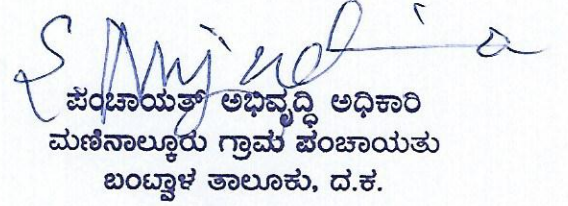 ಪಂಚಾಯತ್ ಅಭಿವೃದ್ಧಿ ಅಧಿಕಾರಿ
ಮಣಿನಾಲ್ಕೂರು ಗ್ರಾಮ ಪಂಚಾಯತು
ಬಂಟ್ವಾಳ ತಾಲೂಕು, ದ.ಕ.